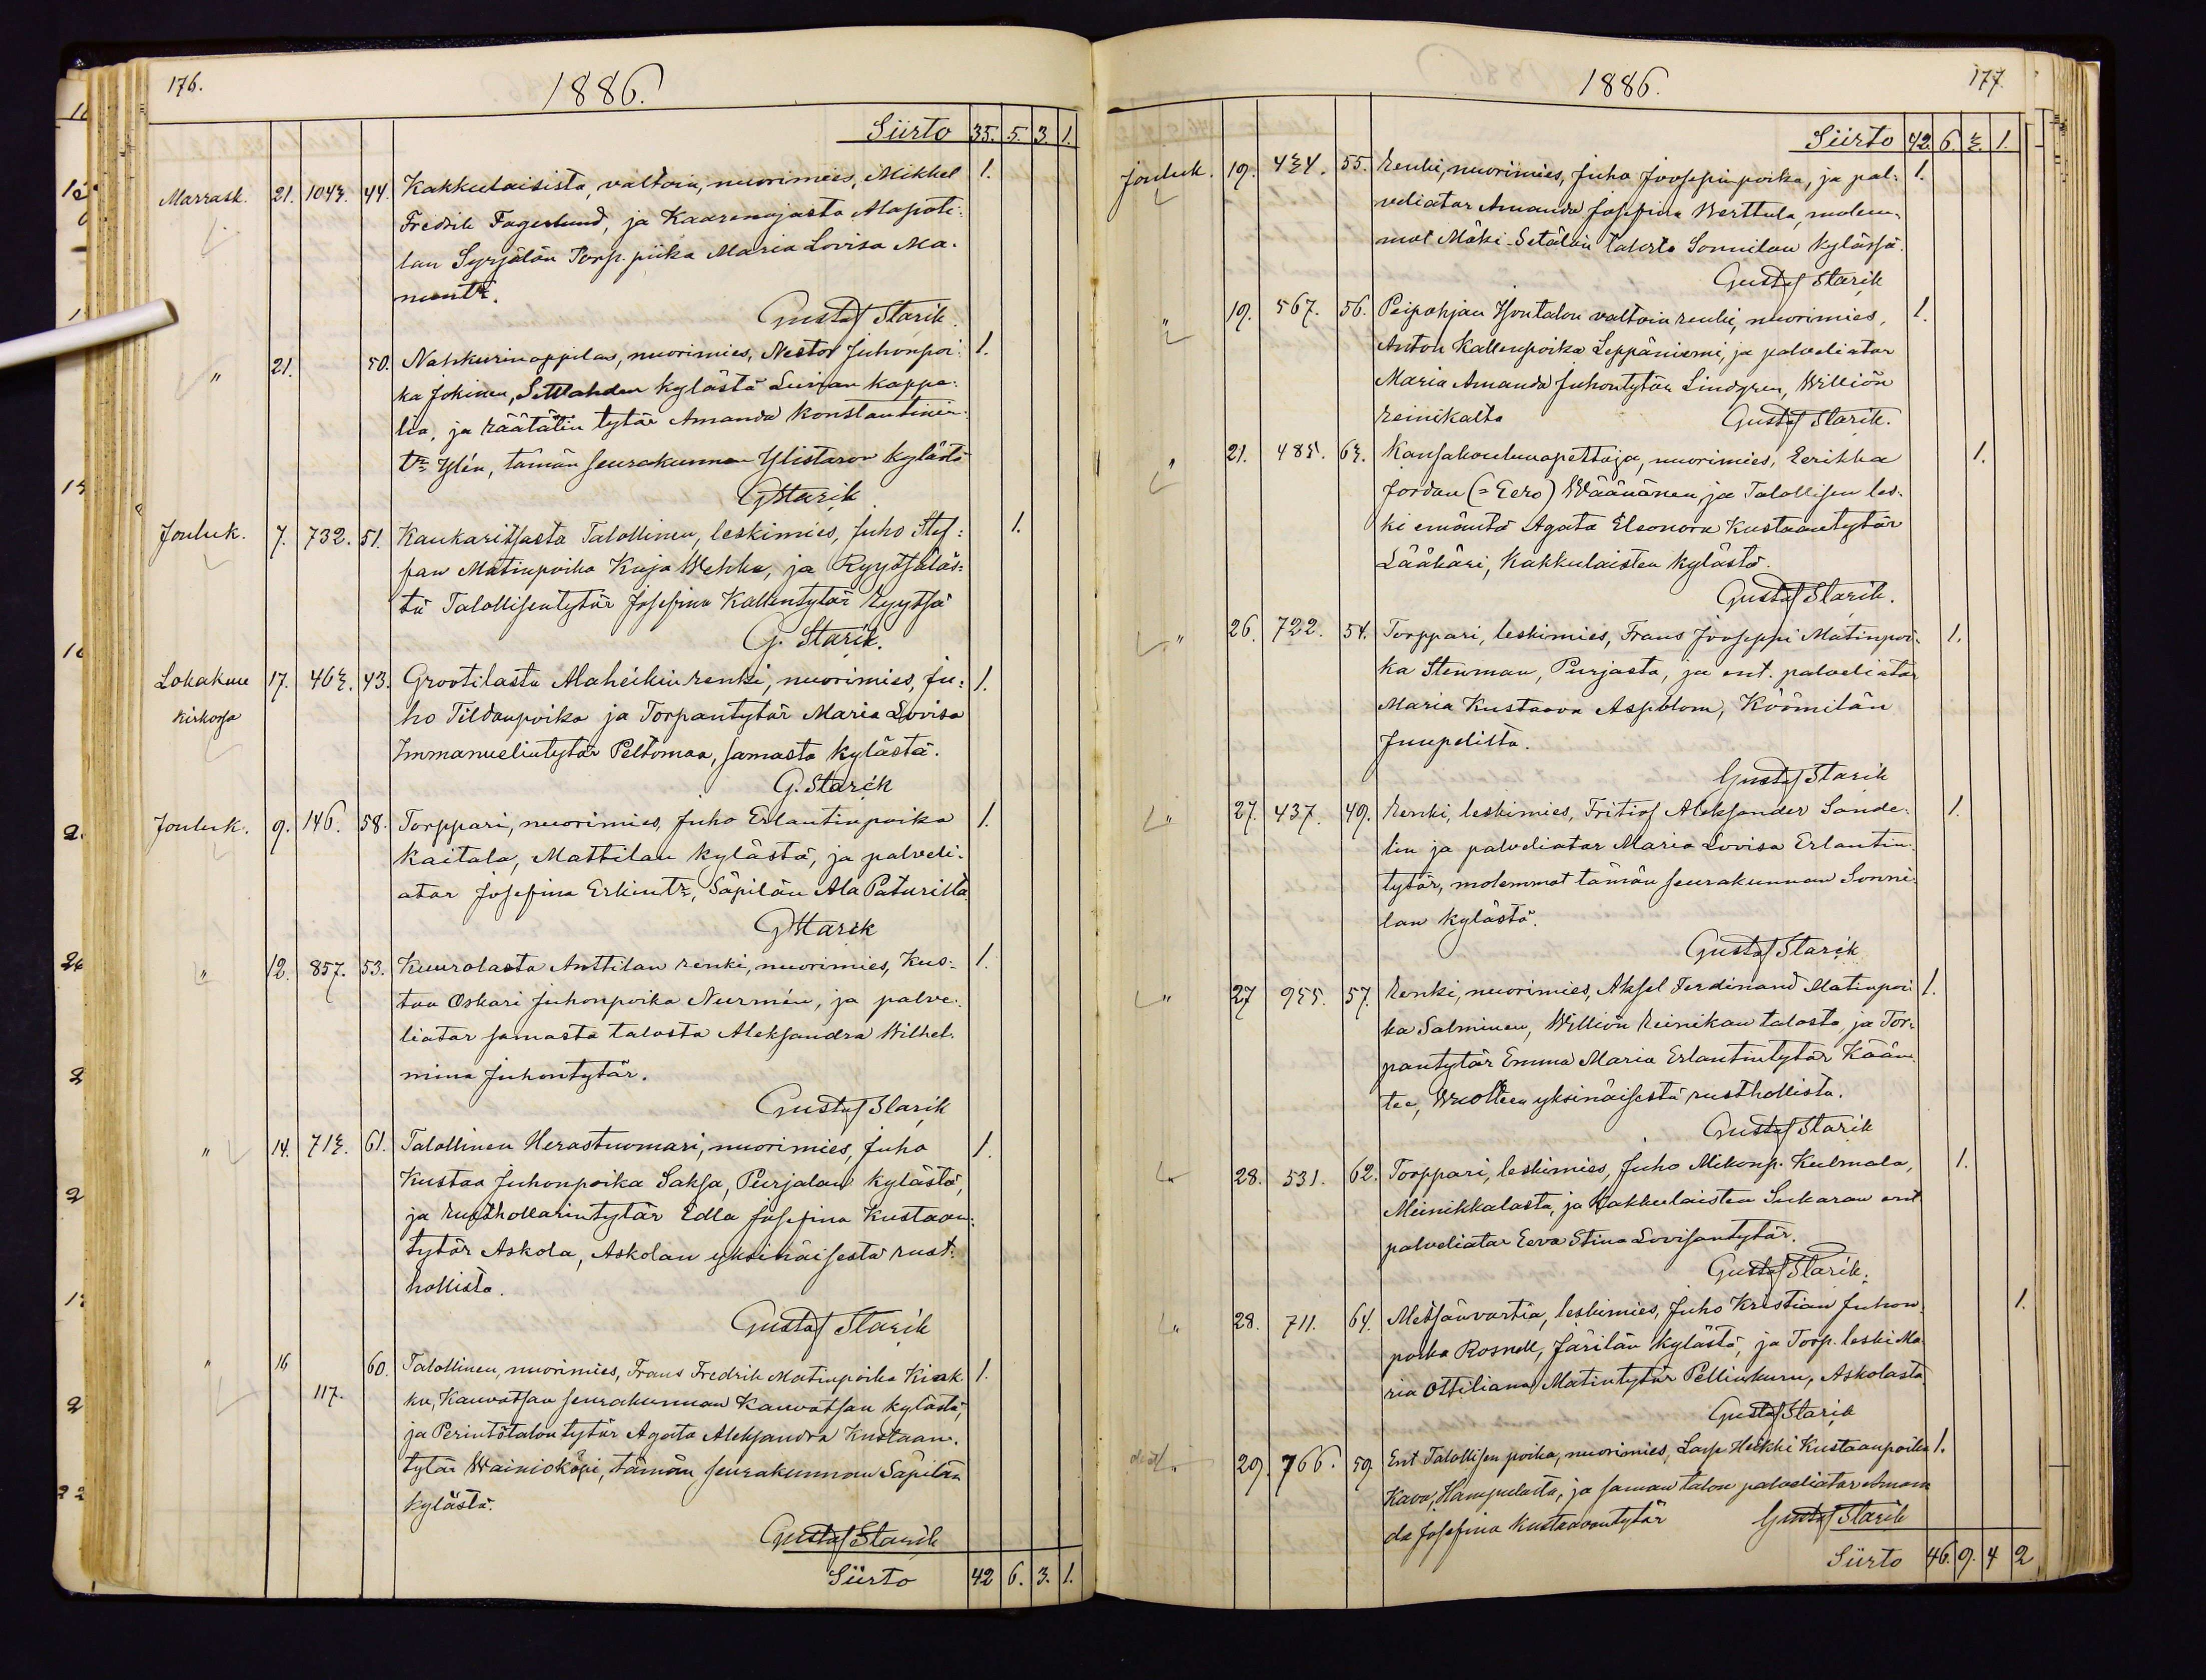 176.
1886.
Siirto 35. 5. 3. 1.
Marrask. 21. 1043. 44. Kakkulaisista, valtoin, nuorimies, Mikkel 1.
Fredrik Fagerlund, ja Kaaremajasta Alapoti-
lan Syrjälän Torp. piika Maria Lovisa Ma-
nuntr.
Gustaf Starik.
" 21. 50. Nahkurinoppilas, nuorimies, Nestor Juhonpoi- 1.
ka Jokinen, Settlahden kylästä Luvian kappe-
lia, ja Räätälin tytär Amanda Konstantinin-
tr Ylén, tämän seurakunnan Ylistaron kylästä
G Starik
Jouluk. 7. 732. 51. Kaukaritsasta Talollinen, leskimies, Juho Stef- 1.
fan Matinpoika Kaja Wehka, ja Ryytsäläs-
tä Talollisentytär Josefina Kallentytär Ryytsä
G. Starik.
Lokakuu 17. 463. 43. Grootilasta Alaheikin renki, nuorimies, Ju- 1.
kirkossa
ho Tildanpoika ja Torpantytär Maria Lovisa
Immanuelintytär Peltomaa, samasta kylästä.
G. Starik
Jouluk. 9. 146. 58. Torppari, nuorimies, Juho Erlantinpoika 1.
Kaitala, Mattilan kylästä, ja palveli-
atar Josefina Erkintr, Säpilän Ala Paturilta
G Starik
" 12. 857. 53. Kuurolasta Anttilan renki, nuorimies, Kus- 1.
taa Oskari Juhonpoika Nurmén, ja palve-
liatar samasta talosta Aleksandra Wilhel-
mina Juhontytär.
Gustaf Starik
" 14. 713. 61. Talollinen Herastuomari, nuorimies, Juho 1.
Kustaa Juhonpoika Saksa, Purjalan kylästä,
ja Rusthollarintytär Edla Josefina Kustaan-
tytär Askola, Askolan yksinäisestä rust-
hollista.
Gustaf Starik
" 16 117. 60. Talollinen, nuorimies, Frans Fredrik Matinpoika Kiak- 1.
ku, Kauvatsan seurakunnan Kauvatsan kylästä,
ja Perintötalon tytär Agata Aleksandra Kustaan-
tytär Wainiokäpi, tämän seurakunnan Säpilän
kylästä.
Gustaf Starik
Siirto 42 6. 3. 1.
1886. 177.
Siirto 42. 6. 3. 1.
Jouluk. 19. 434. 55. Renki, nuorimies, Juho Jooseppinpoika, ja pal- 1.
veliatar Amanda Josefina Werttula, molem-
mat Mäki-Setälän talosta Sonnilan kylässä.
Gustaf Starik
" 19. 567. 56. Peipohjan Isontalon valtoin renki, nuorimies, 1.
Anton Kallenpoika Leppäniemi, ja palveliatar
Maria Amanda Juhontytär Lindgren, Williön
Reinikalta
Gustaf Starik.
" 21. 485. 63. Kansakoulunopettaja, nuorimies, Eerikka 1.
Jordan (=Eero) Wäänänen ja Talollisen les-
ki emäntä Agata Eleonora Kustaantytär
Lääkäri, Kakkulaisten kylästä.
Gustaf Starik.
" 26. 722. 54. Torppari, leskimies, Frans Jooseppi Matinpoi- 1.
ka Stenman, Purjasta, ja ent. palveliatar
Maria Kustaava Aspblom, Köömilän
Juupelilta.
Gustaf Starik
" 27. 437. 49. Renki, leskimies, Fritiof Aleksander Sande- 1.
lin ja palveliatar Maria Lovisa Erlantin-
tytär, molemmat tämän seurakunnan Sonni-
lan kylästä.
Gustaf Starik
" 27 955. 57. Renki, nuorimies, Aksel Ferdinand Matinpoi- 1.
ka Salminen, Williön Reinikan talosta, ja Tor-
pantytär Emma Maria Erlantintytär Kään-
tee, Wuolteen yksinäisestä rusthollista.
Gustaf Starik
28. 531. 62. Torppari, leskimies, Juho Mikonp. Kulmala, 1.
Meinikkalasta, ja Kakkulaisten Sukaran ent
palveliatar Eeva Stina Lovisantytär.
Gustaf Starik.
" 28. 711. 64. Metsänvartia, leskimies, Juho Kristian Juhon- 1.
poika Rosnell, Järilän kylästä, ja Torp. leski Ma-
ria Ottiliana Matintytär Pellinkuru, Askolasta.
Gustaf Starik
" 29. 766. 59. Ent Talollisen poika, nuorimies, Lars Heikki Kustaanpoika 1.
Kava, Hampulasta, ja saman talon palveliatar Aman-
da Josefina Kustaavantytär
Gustaf Starik
Siirto 46. 9. 4 2